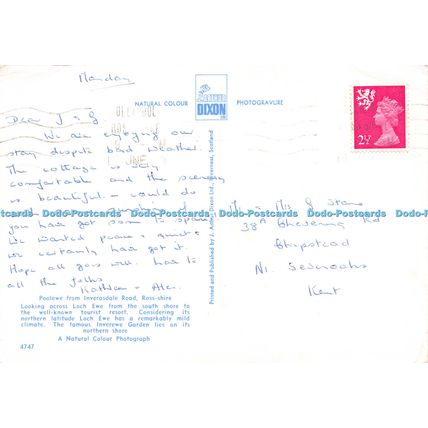 Monday
NATURAL COLOUR
ARTHUR
DIXON
PHOTOGRAVURE
2½
Dear J & G
We are enjoying our
stay despite bad weather.
The cottage is very
comfortable and the scenery
is beautiful - could do
you have got some to spare.
We wanted peace & quiet &
we certainly have got it.
Hope all goes well. Love to
all the folks
Kathleen & Alec.
Printed and Published by J. Arthur Dixon Ltd., Inverness, Scotland
Mr & Mrs G
38A Chevening Rd
Chipstead
Nr. Sevenoaks
Kent
Dodo-Postcards Dodo-Postcards Dodo-Postcards Dodo-Postcards
Dodo-Postcards Dodo-Postcards Dodo-Postcards Dodo-Postcards
Poolewe from Inverasdale Road, Ross-shire
Looking across Loch Ewe from the south shore to
the well-known tourist resort. Considering its
northern latitude Loch Ewe has a remarkably mild
climate. The famous Inverewe Garden lies on its
northern shore
A Natural Colour Photograph
4747